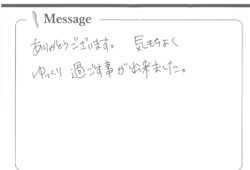 Message
ありがとうございます。 気もちよく
ゆっくり 過ごす事が出来ました。